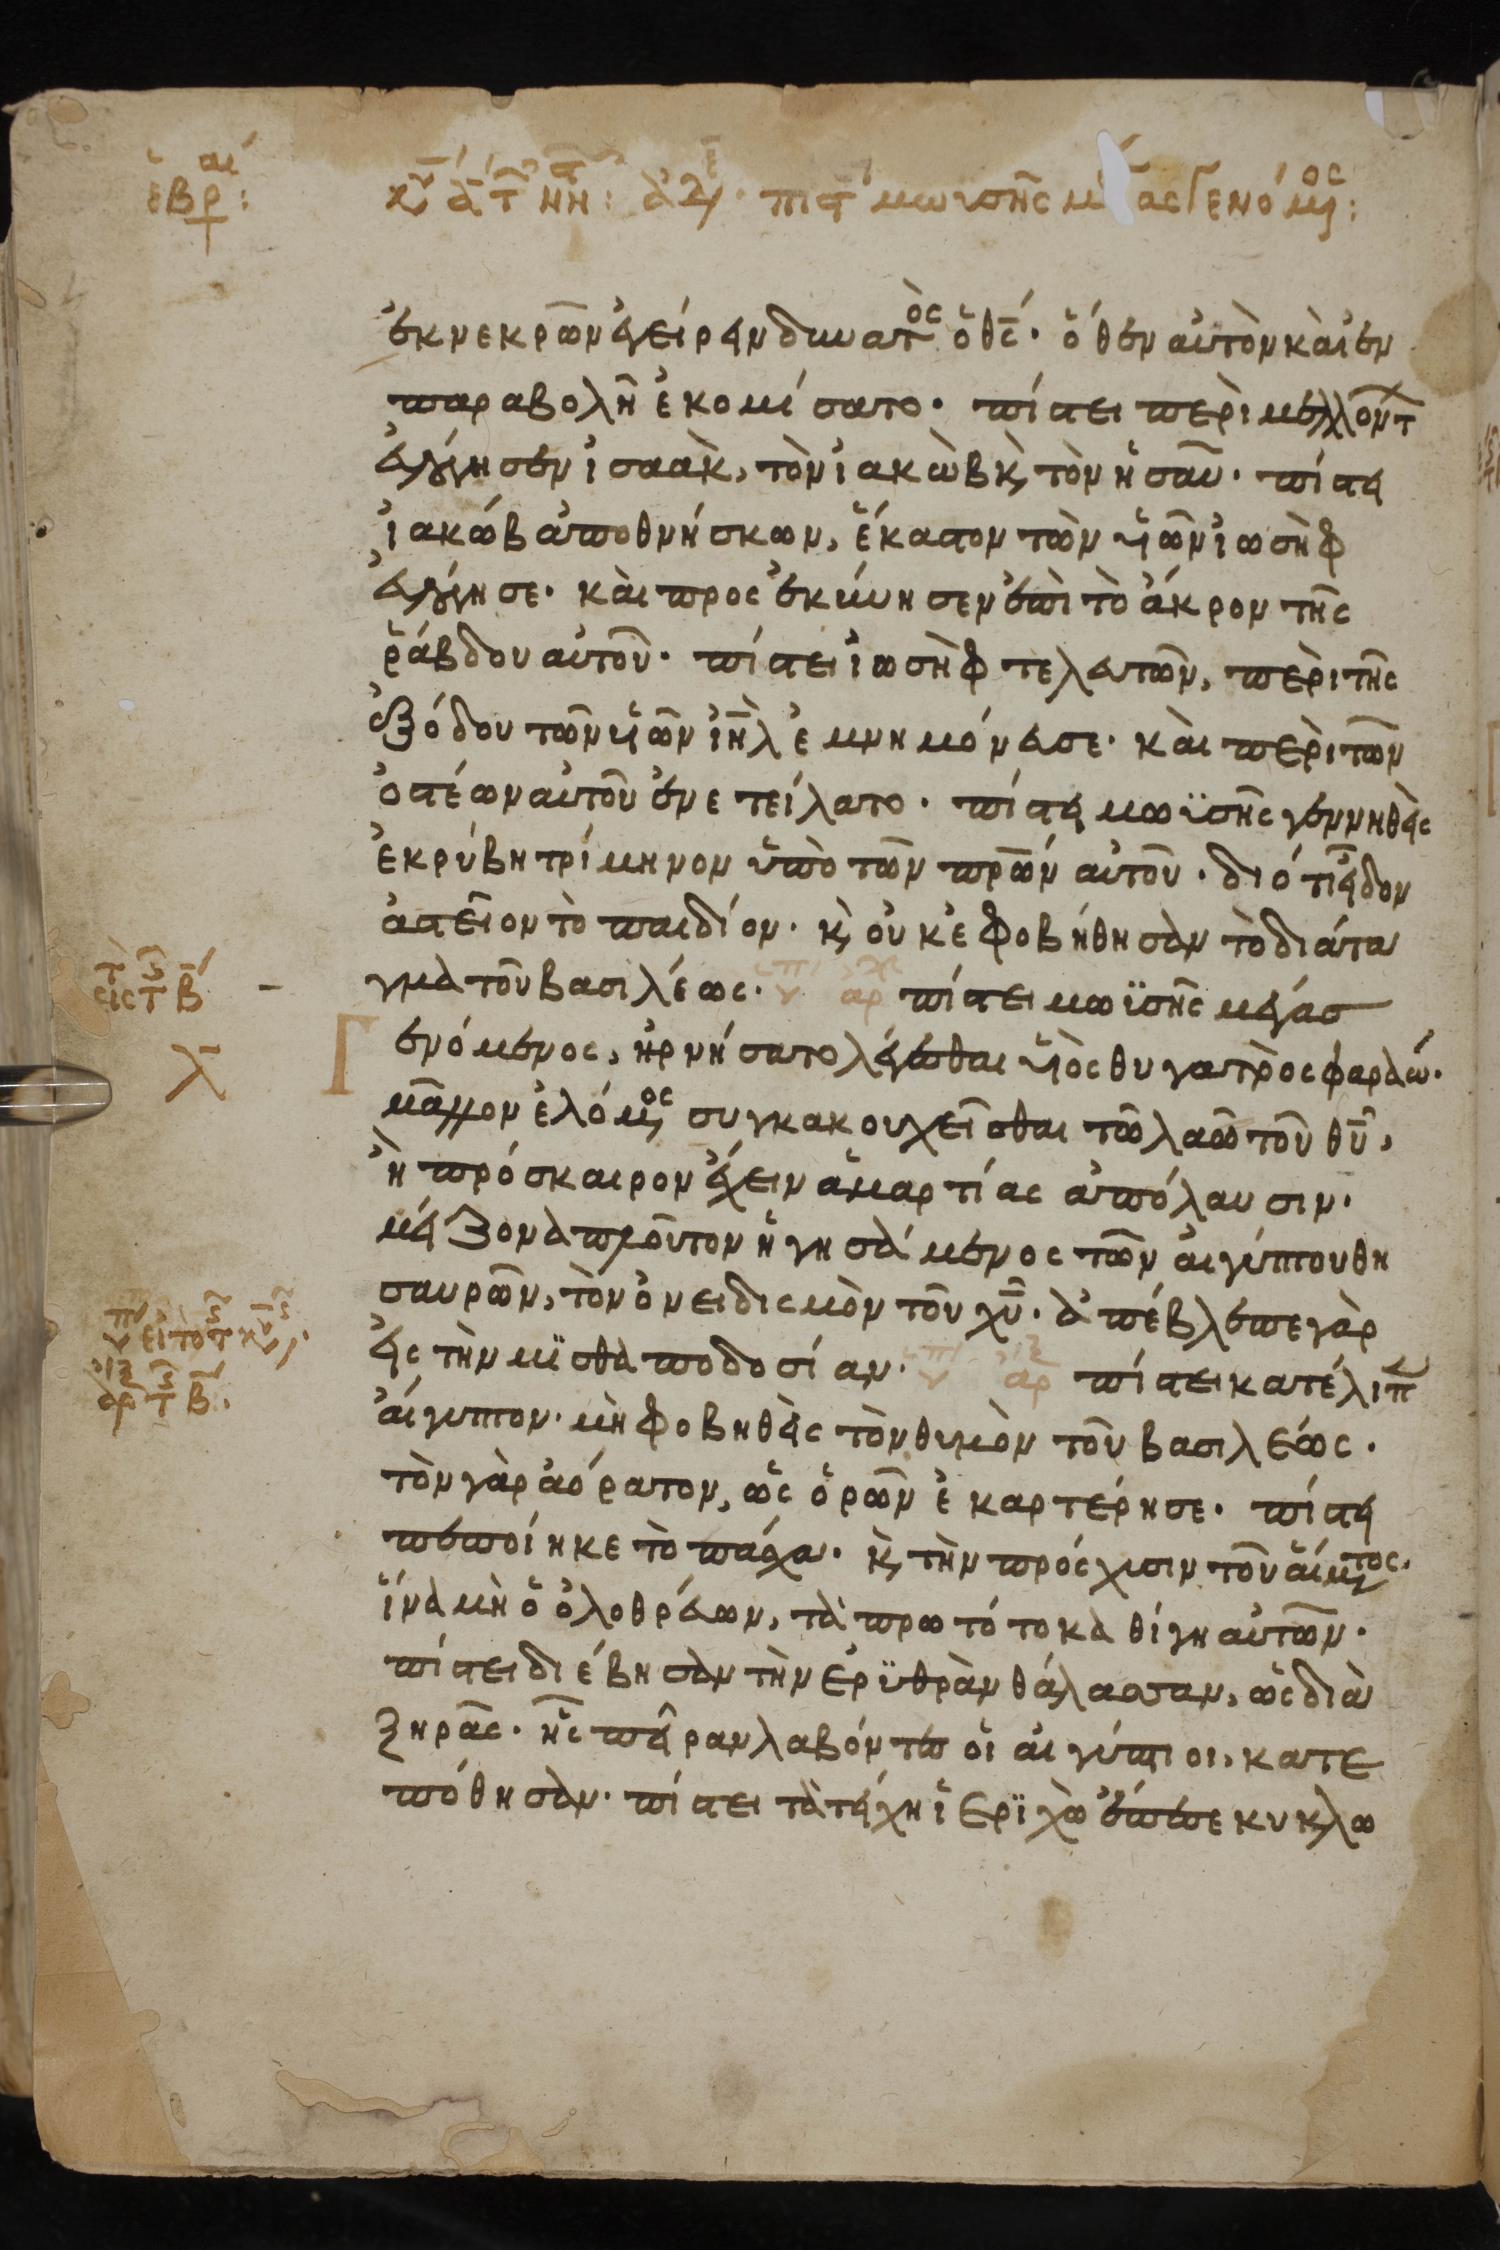 ἑβρ αι:
κυ α τ νη: ἀδελ. πιστ μωυσῆς μ ας Γενόμος:
ἐκ νεκρῶν ἐγείρειν δυνατὸς ὁ θς. ὅθεν αὐτὸν καὶ ἐν
παραβολῆ ἐκομίσατο. πίστει περὶ μελλόντ
εὐλόγησεν ἰσαὰκ, τὸν ἰακὼβ κ τὸν ἠσαῦ. πίστει
ἰακώβ ἀποθνήσκων, ἕκαστον τῶν ὑιῶν ἰωσὴφ
εὐλόγησε. καὶ προσεκύνησεν ἐπὶ τὸ ἄκρον τῆς
ῥάβδου αὐτοῦ. πίστει ἰωσὴφ τελευτῶν, περὶ τῆς
ἐξόδου τῶν ὑιῶν ιηλ ἐμνημόνευσε. καὶ περὶ τῶν
ὀστέων αὐτοῦ ἐνετείλατο. πίστει μωϋσῆς γεννηθεὶς
ἐκρύβη τρίμηνον ὑπὸ τῶν πρων αὐτοῦ. διότι εἶδον
ἀστεῖον τὸ παιδίον. κ οὐκ ἐφοβήθησαν τὸ διάτα
γμα τοῦ βασιλέως. πίστει μωϋσῆς μέγας
εἰς τ β
λ
Γενόμενος, ἠρνήσατο λέγεσθαι ὑιὸς θυγατρὸς φαραώ.
μᾶλλον ἑλόμος συγκακουχεῖσθαι τῶ λαῶ τοῦ θυ,
ἢ πρόσκαιρον ἔχειν ἁμαρτίας ἀπόλαυσιν.
μείζονα πλοῦτον ἡγησάμενος τῶν αἰγύπτου θη
σαυρῶν, τὸν ὀνειδισμὸν τοῦ χυ. ἀπέβλεπε γὰρ
εἰς τὴν μϊσθαποδοσίαν. πίστει κατέλιπ
αἴγυπτον. μὴ φοβηθεὶς τὸν θυμὸν τοῦ βασιλέως.
τὸν γὰρ ἀόρατον, ὡς ὁρῶν ἐκαρτέρησε. πίστει
πεποίηκε τὸ πάσχα. κ τὴν πρόσχυσιν τοῦ αἵματος.
ἵνα μὴ ὁ ὀλοθρεύων, τὰ πρωτότοκα θίγη αὐτῶν.
πίστει διέβησαν τὴν ἐρϋθρὰν θάλασσαν, ὡς διὰ
ξηρᾶς. ἧς πεῖραν λαβόντες οἱ αἰγύπτιοι, κατε
πόθησαν. πίστει τὰ τείχη ἱερϊχὼ ἔπεσε κυκλω